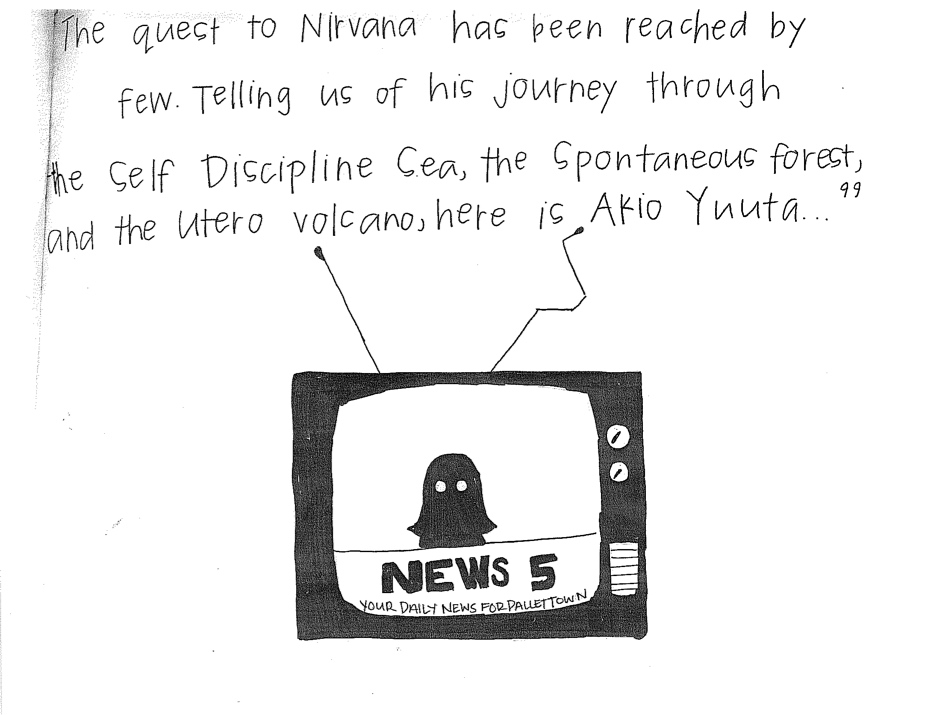 "The quest to Nirvana has been reached by
few. Telling us of his journey through
the Self Discipline Sea, the Spontaneous forest,
and the Utero volcano, here is Akio Yuuta..."
NEWS 5
YOUR DAILY NEWS FOR PALLET TOWN